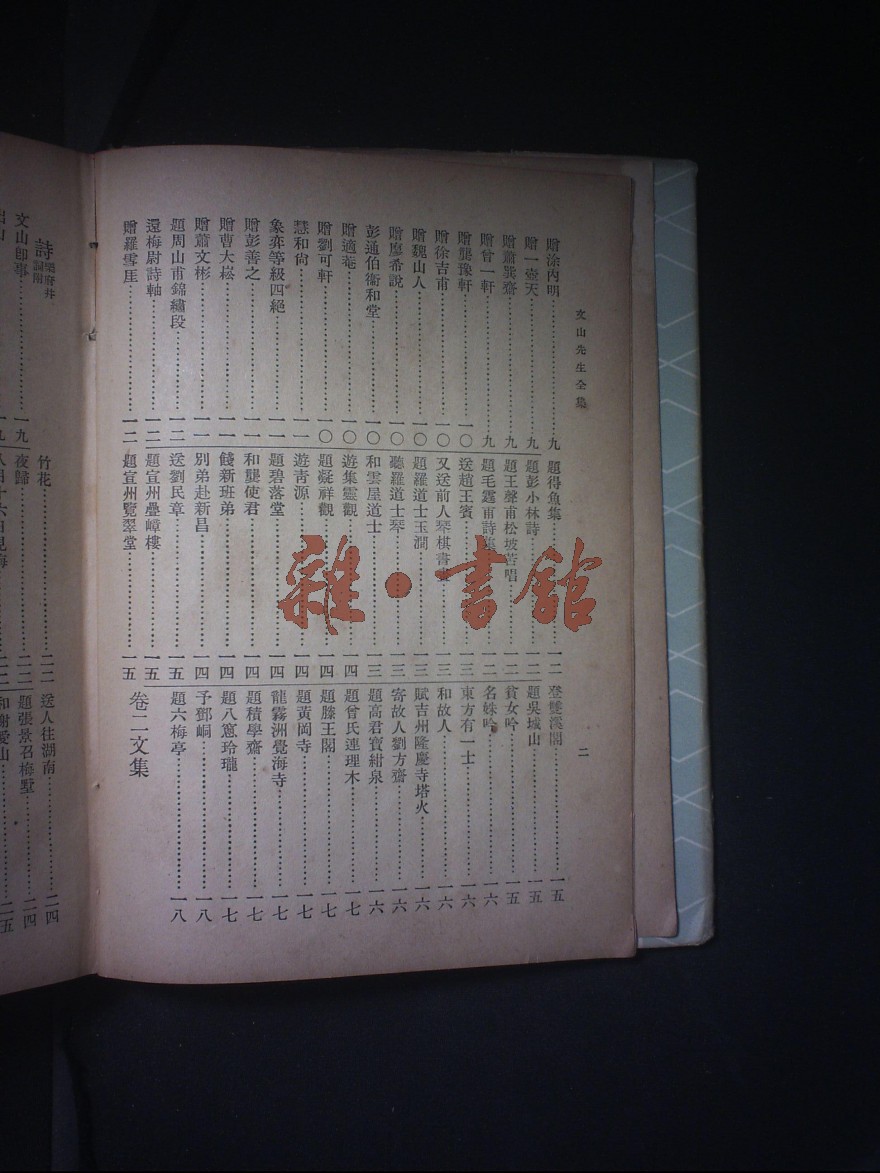 文山先生全集
二
贈涂內明……九
贈一壺天……九
贈蕭巽齋……九
贈曾一軒……九
贈龔豫軒……一〇
贈徐吉甫……一〇
贈魏山人……一〇
贈廖希說……一〇
彭通伯衞和堂……一〇
贈適菴……一〇
贈劉可軒……一〇
慧和尙……一一
象弈等級四絕……一一
贈彭善之……一一
贈曹大崧……一一
贈蕭文彬……一一
題周山甫錦繡段……一二
還梅尉詩軸……一二
贈羅雪厓……一二
題得魚集……一二
題彭小林詩……一二
題王聲甫松坡苦唱……一二
題毛霆甫詩集……一二
送趙王賓……一三
又送前人琴棋書……一三
題羅道士玉澗……一三
聽羅道士琴……一三
和雲屋道士……一三
遊集靈觀……一四
題凝祥觀……一四
遊靑源……一四
題碧落堂……一四
和龔使君……一四
餞新班弟……一四
別弟赴新昌……一四
送劉民章……一五
題宣州疊嶂樓……一五
題宣州覽翠堂……一五
登雙溪閣……一五
題吳城山……一五
貧女吟……一五
名姝吟……一六
東方有一士……一六
和故人……一六
賦吉州隆慶寺塔火……一六
寄故人劉方齋……一六
題高君寶紺泉……一六
題曾氏連理木……一七
題滕王閣……一七
題黃岡寺……一七
龍霧洲覺海寺……一七
題積學齋……一七
題八窻玲瓏……一七
予鄧峒……一八
題六梅亭……一八
卷二文集
詩
文山卽事……一九
竹花……二二
夜歸……二二
送人往湖南……二四
題張景召梅墅……二四
和謝愛山……二五
雜·書館